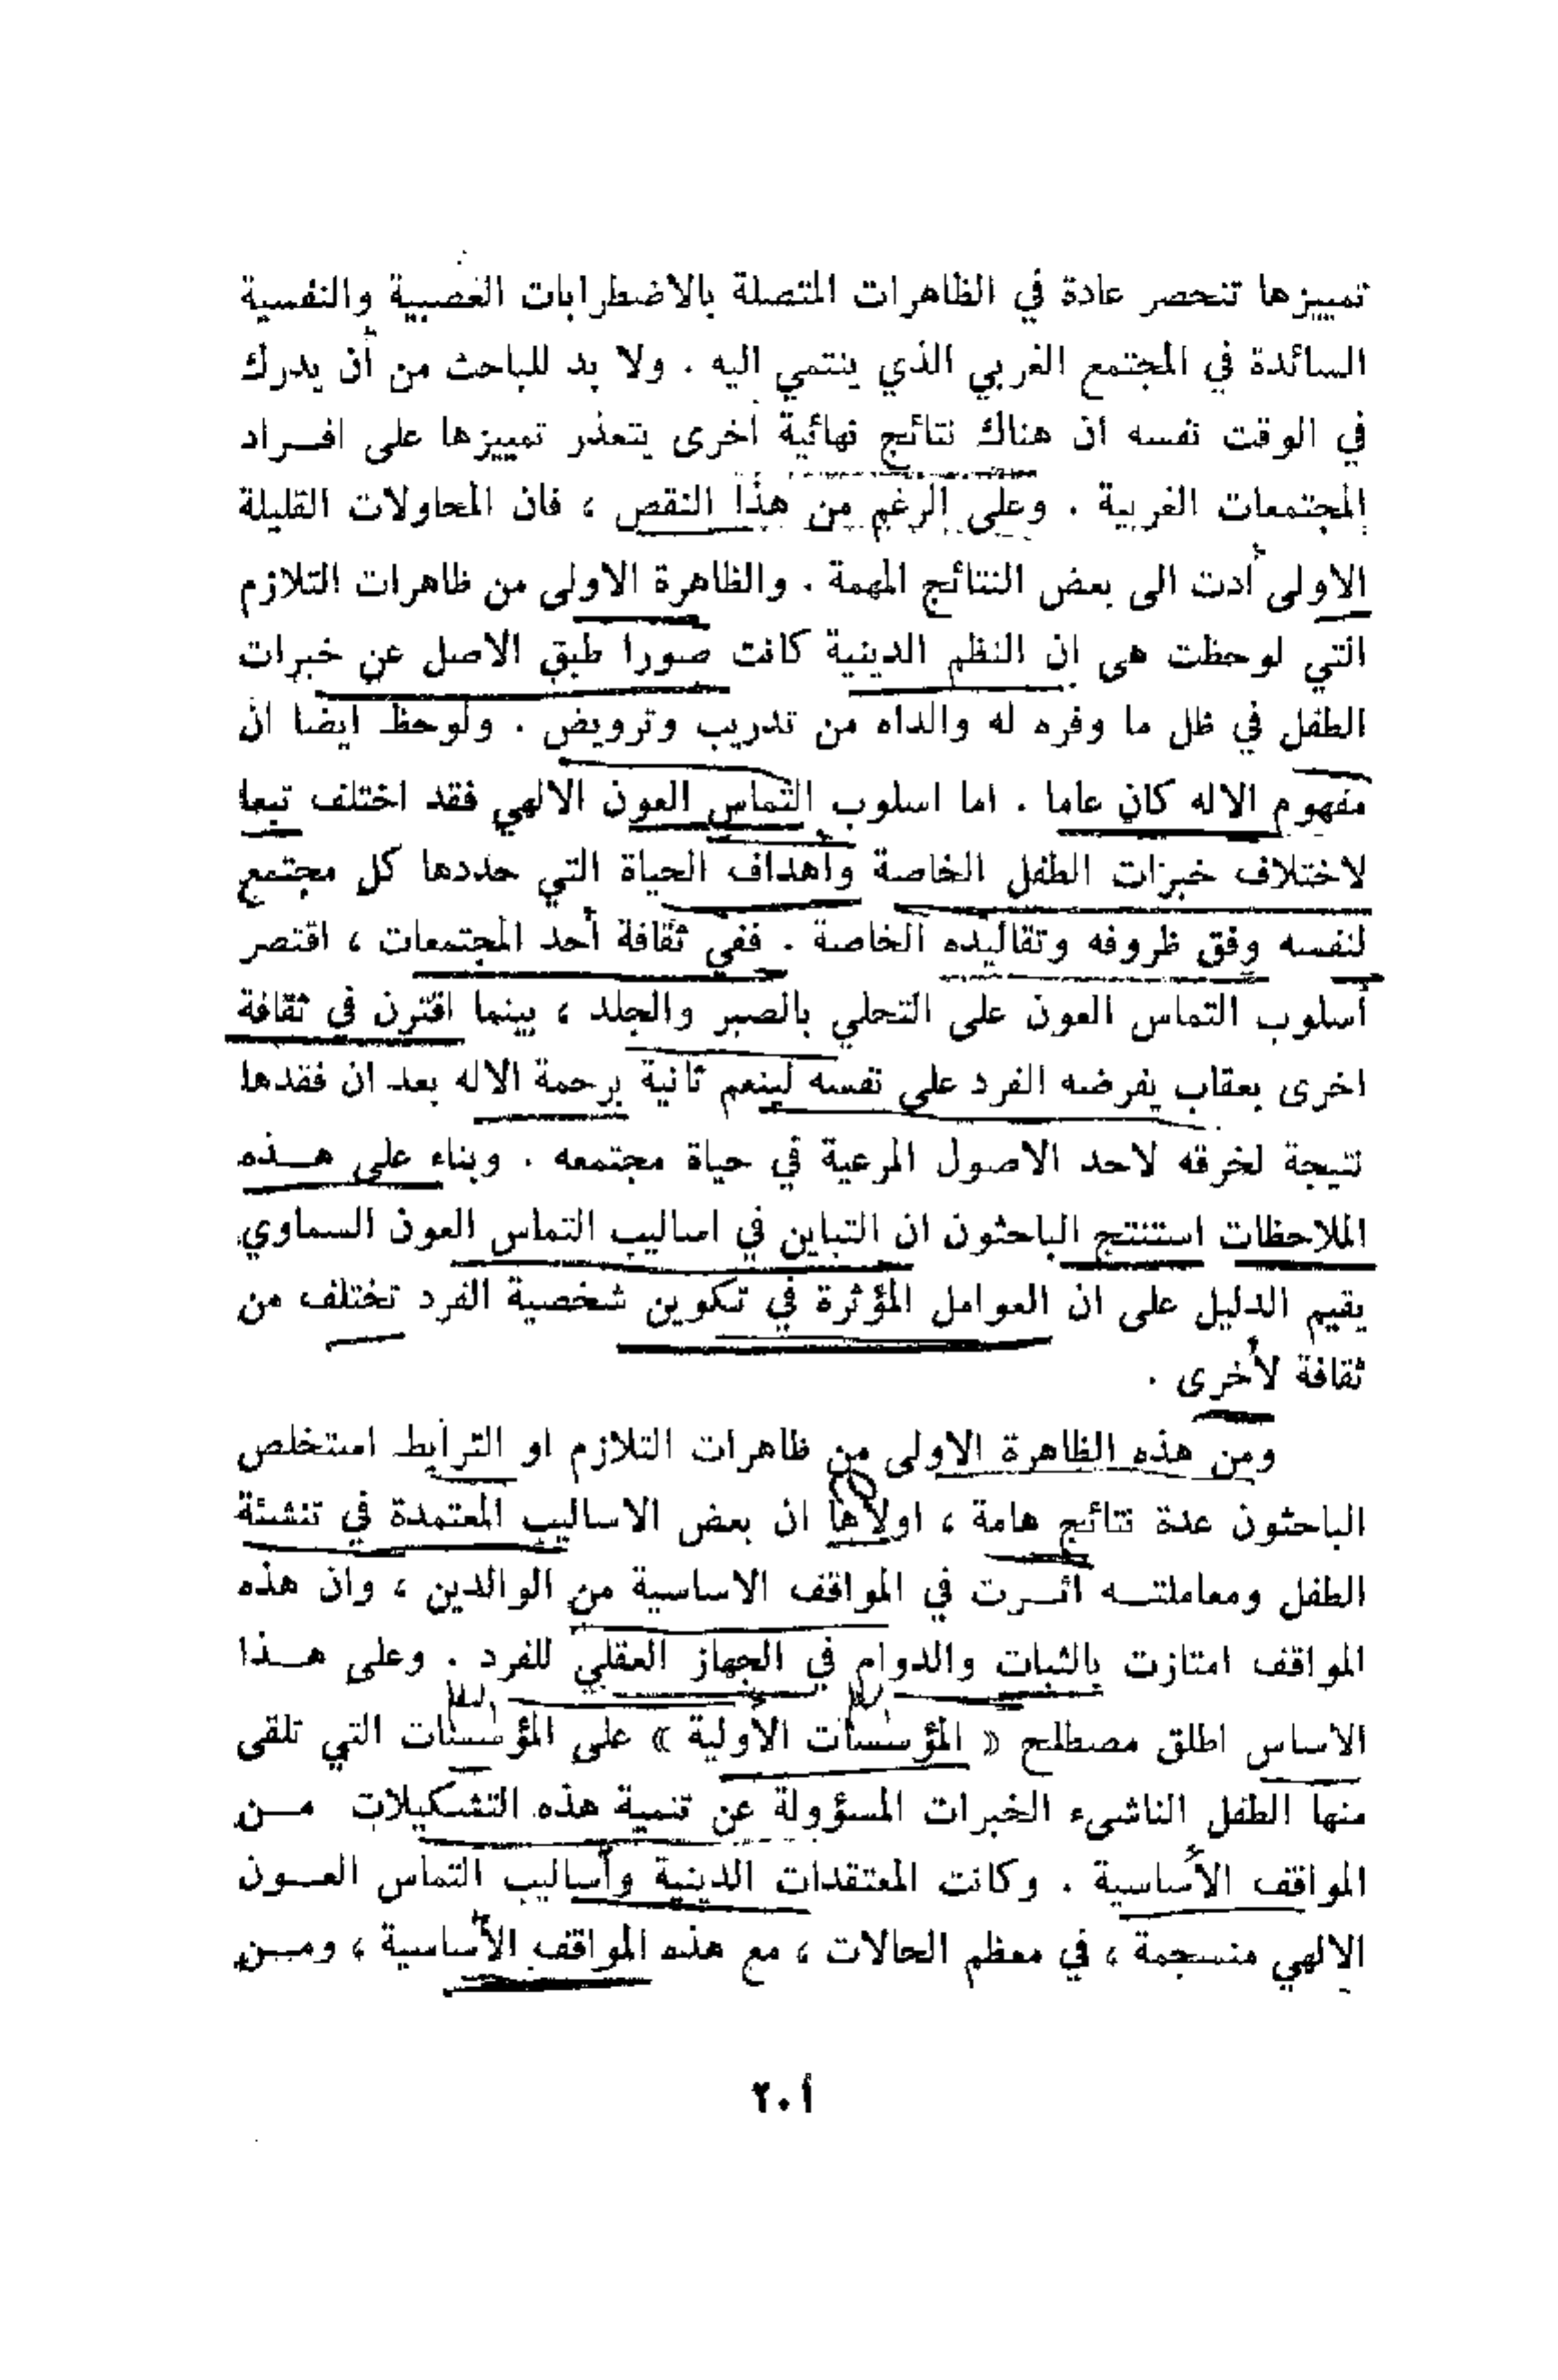 تمييزها تنحصر عادة في الظاهرات المتصلة بالاضطرابات العصبية والنفسية
السائدة في المجتمع الغربي الذي ينتمي اليه . ولا بد للباحث من أن يدرك
في الوقت نفسه ان هناك نتائج نهائية أخرى يتعذر تمييزها على افــراد
المجتمعات الغربية . وعلى الرغم من هذا النقص ، فان المحاولات القليلة
الاولى أدت الى بعض النتائج المهمة . والظاهرة الاولى من ظاهرات التلازم
التي لوحظت هى ان النظم الدينية كانت صورا طبق الاصل عن خبرات
الطفل في ظل ما وفره له والداه من تدريب وترويض . ولوحظ ايضا ان
مفهوم الاله كان عاما . اما اسلوب التماس العون الالهي فقد اختلف تبعا
لاختلاف خبرات الطفل الخاصة واهداف الحياة التي حددها كل مجتمع
لنفسه وفق ظروفه وتقاليده الخاصة . ففي ثقافة أحد المجتمعات ، اقتصر
أسلوب التماس العون على التحلي بالصبر والجلد ، بينما اقترن في ثقافة
اخرى بعقاب يفرضه الفرد على نفسه لينعم ثانية برحمة الاله بعد ان فقدها
نتيجة لخرقه لاحد الاصول المرعية في حياة مجتمعه . وبناء على هــذه
الملاحظات استنتج الباحثون ان التباين في اساليب التماس العون السماوي
يقيم الدليل على ان العوامل المؤثرة في تكوين شخصية الفرد تختلف من
ثقافة لأخرى .
ومن هذه الظاهرة الاولى من ظاهرات التلازم او الترابط استخلص
الباحثون عدة نتائج هامة ، اولاها ان بعض الاساليب المعتمدة في تنشئة
الطفل ومعاملتــه اثــرت في المواقف الاساسية من الوالدين ، وان هذه
المواقف امتازت بالثبات والدوام في الجهاز العقلي للفرد . وعلى هــذا
الاساس اطلق مصطلح « المؤسسات الأولية » على المؤسسات التي تلقى
منها الطفل الناشىء الخبرات المسؤولة عن تنمية هذه التشكيلات مــن
المواقف الأساسية . وكانت المعتقدات الدينية وأساليب التماس العــون
الالهي منسجمة ، في معظم الحالات ، مع هذه المواقف الأساسية ، ومــن
٢٠١